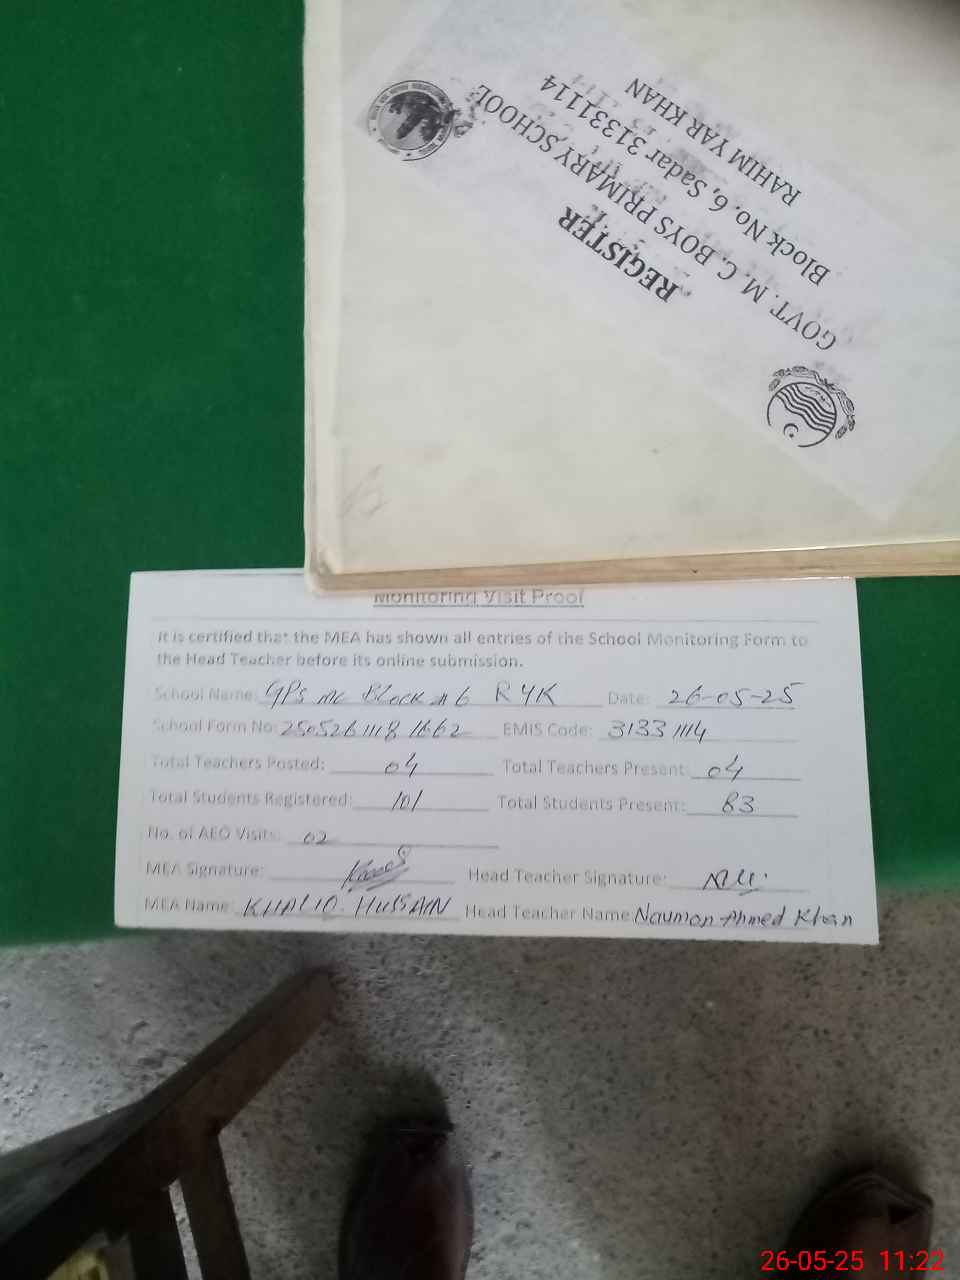 REGISTER
GOVT. M. C. BOYS PRIMARY SCHOOL
Block No. 6, Sadar 31331114
RAHIM YAR KHAN
Monitoring Visit Proof
It is certified that the MEA has shown all entries of the School Monitoring Form to
the Head Teacher before its online submission.
School Name: GPS MC Block # 6 RYK Date: 26-05-25
School Form No: 2505261118 1662 EMIS Code: 31331114
Total Teachers Posted: 04 Total Teachers Present: 04
Total Students Registered: 101 Total Students Present: 83
No. of AEO Visits: 02
MEA Signature: Head Teacher Signature:
MEA Name: KHALIQ. HUSSAIN Head Teacher Name: Nauman Ahmed Khan
26-05-25 11:22